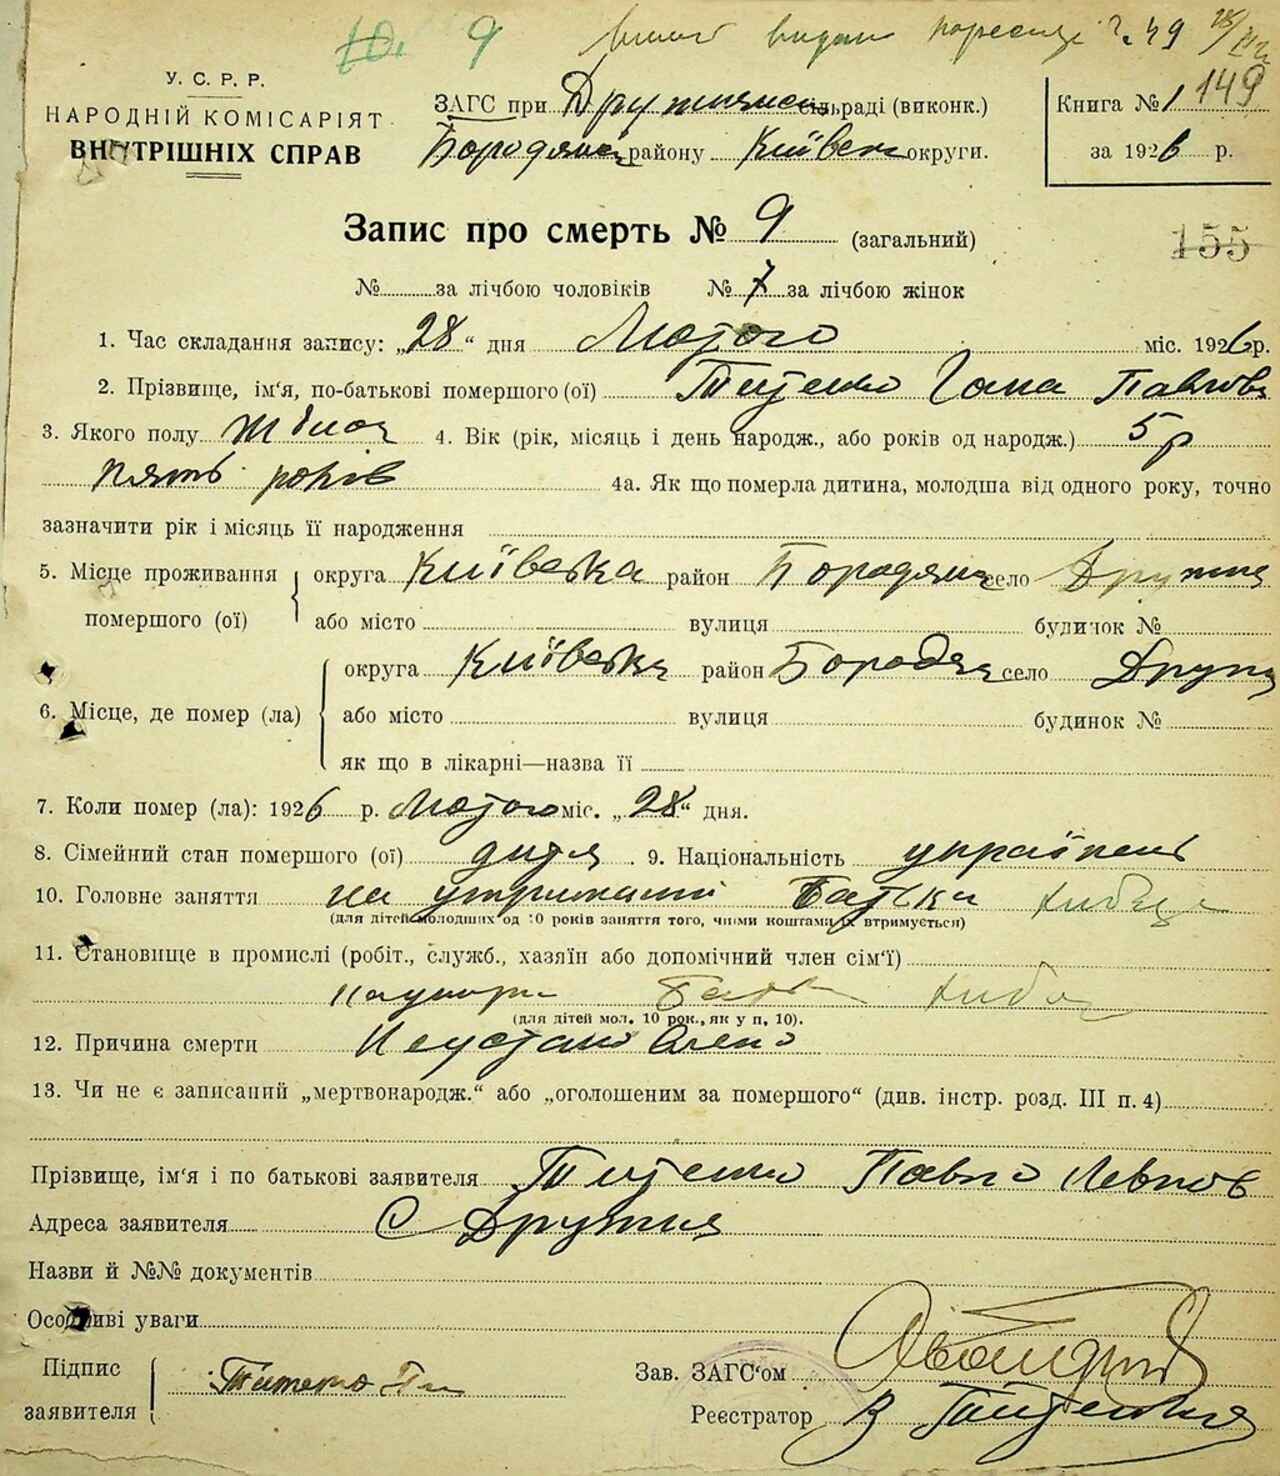 9
У. С. Р. Р.
НАРОДНІЙ КОМІСАРІЯТ
ВНУТРІШНІХ СПРАВ
ЗАГС при сільраді (виконк.)
району округи.
Книга № 1 149
за 1926 р.
Запис про смерть № 9 (загальний)
155
№ за лічбою чоловіків № 7 за лічбою жінок
1. Час складання запису: „28“ дня Лютого міс. 1926 р.
2. Прізвище, ім'я, по-батькові помершого (ої) Титенко Гана Павлов
3. Якого полу 4. Вік (рік, місяць і день народж., або років од народж.) 5 р
пять років 4а. Як що померла дитина, молодша від одного року, точно
зазначити рік і місяць її народження
5. Місце проживання помершого (ої) округа Київська район Бородянс село Дружня
або місто вулиця будинок №
6. Місце, де помер (ла) округа Київська район село
або місто вулиця будинок №
як що в лікарні—назва її
7. Коли помер (ла): 1926 р. Лютого міс. „28“ дня.
8. Сімейний стан помершого (ої) дитя . 9. Національність українець
10. Головне заняття на утриманні Батька
(для дітей молодших од 10 років заняття того, чиїми коштами їх втримується)
11. Становище в промислі (робіт., служб., хазяїн або допомічний член сім'ї)
(для дітей мол. 10 рок., як у п. 10).
12. Причина смерти
13. Чи не є записаний „мертвонародж.“ або „оголошеним за помершого“ (див. інстр. розд. III п. 4)
Прізвище, ім'я і по батькові заявителя Титенко Павло
Адреса заявителя С Дружня
Назви й №№ документів
Особливі уваги
Підпис заявителя Титенко
Зав. ЗАГС'ом
Реєстратор